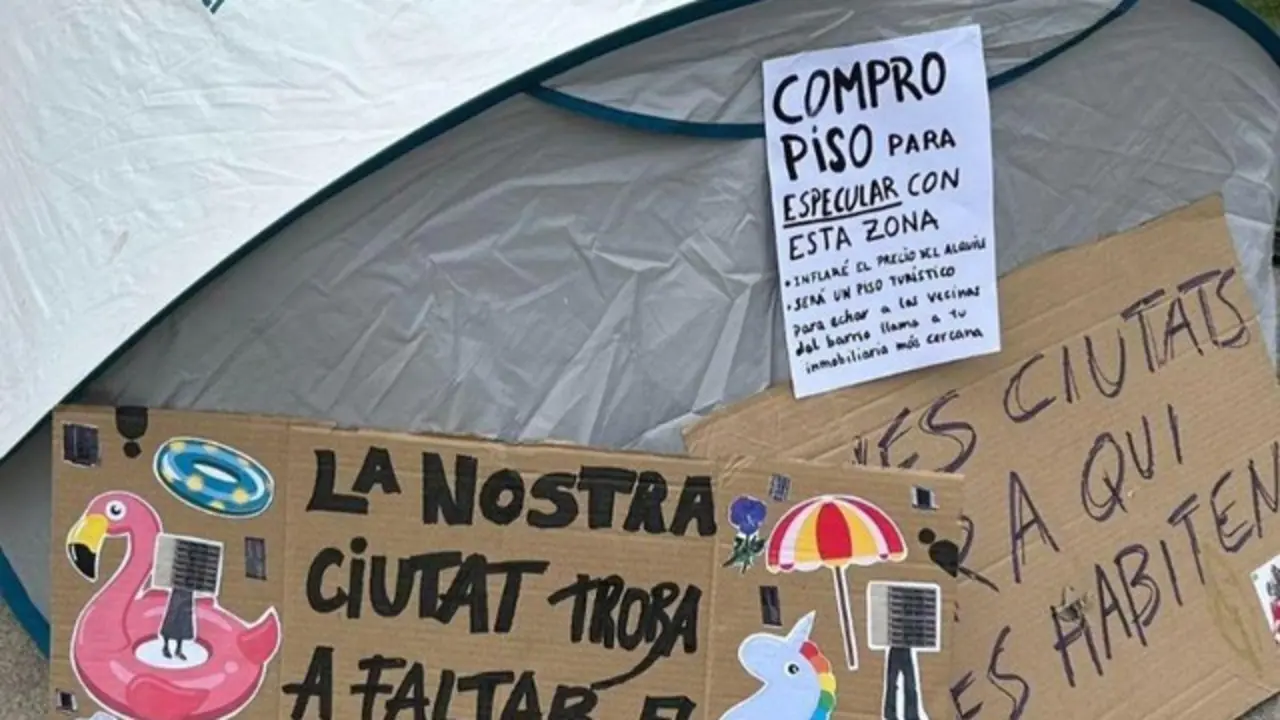 COMPRO
PISO PARA
ESPECULAR CON
ESTA ZONA
• INFLARÉ EL PRECIO DEL ALQUILE
• SERÁ UN PISO TURÍSTICO
para echar a las vecinas
del barrio llama a tu
inmobiliaria más cercana
LA NOSTRA
CIUTAT TROBA
A FALTAR
ES CIUTATS
A QUI
ES HABITEN